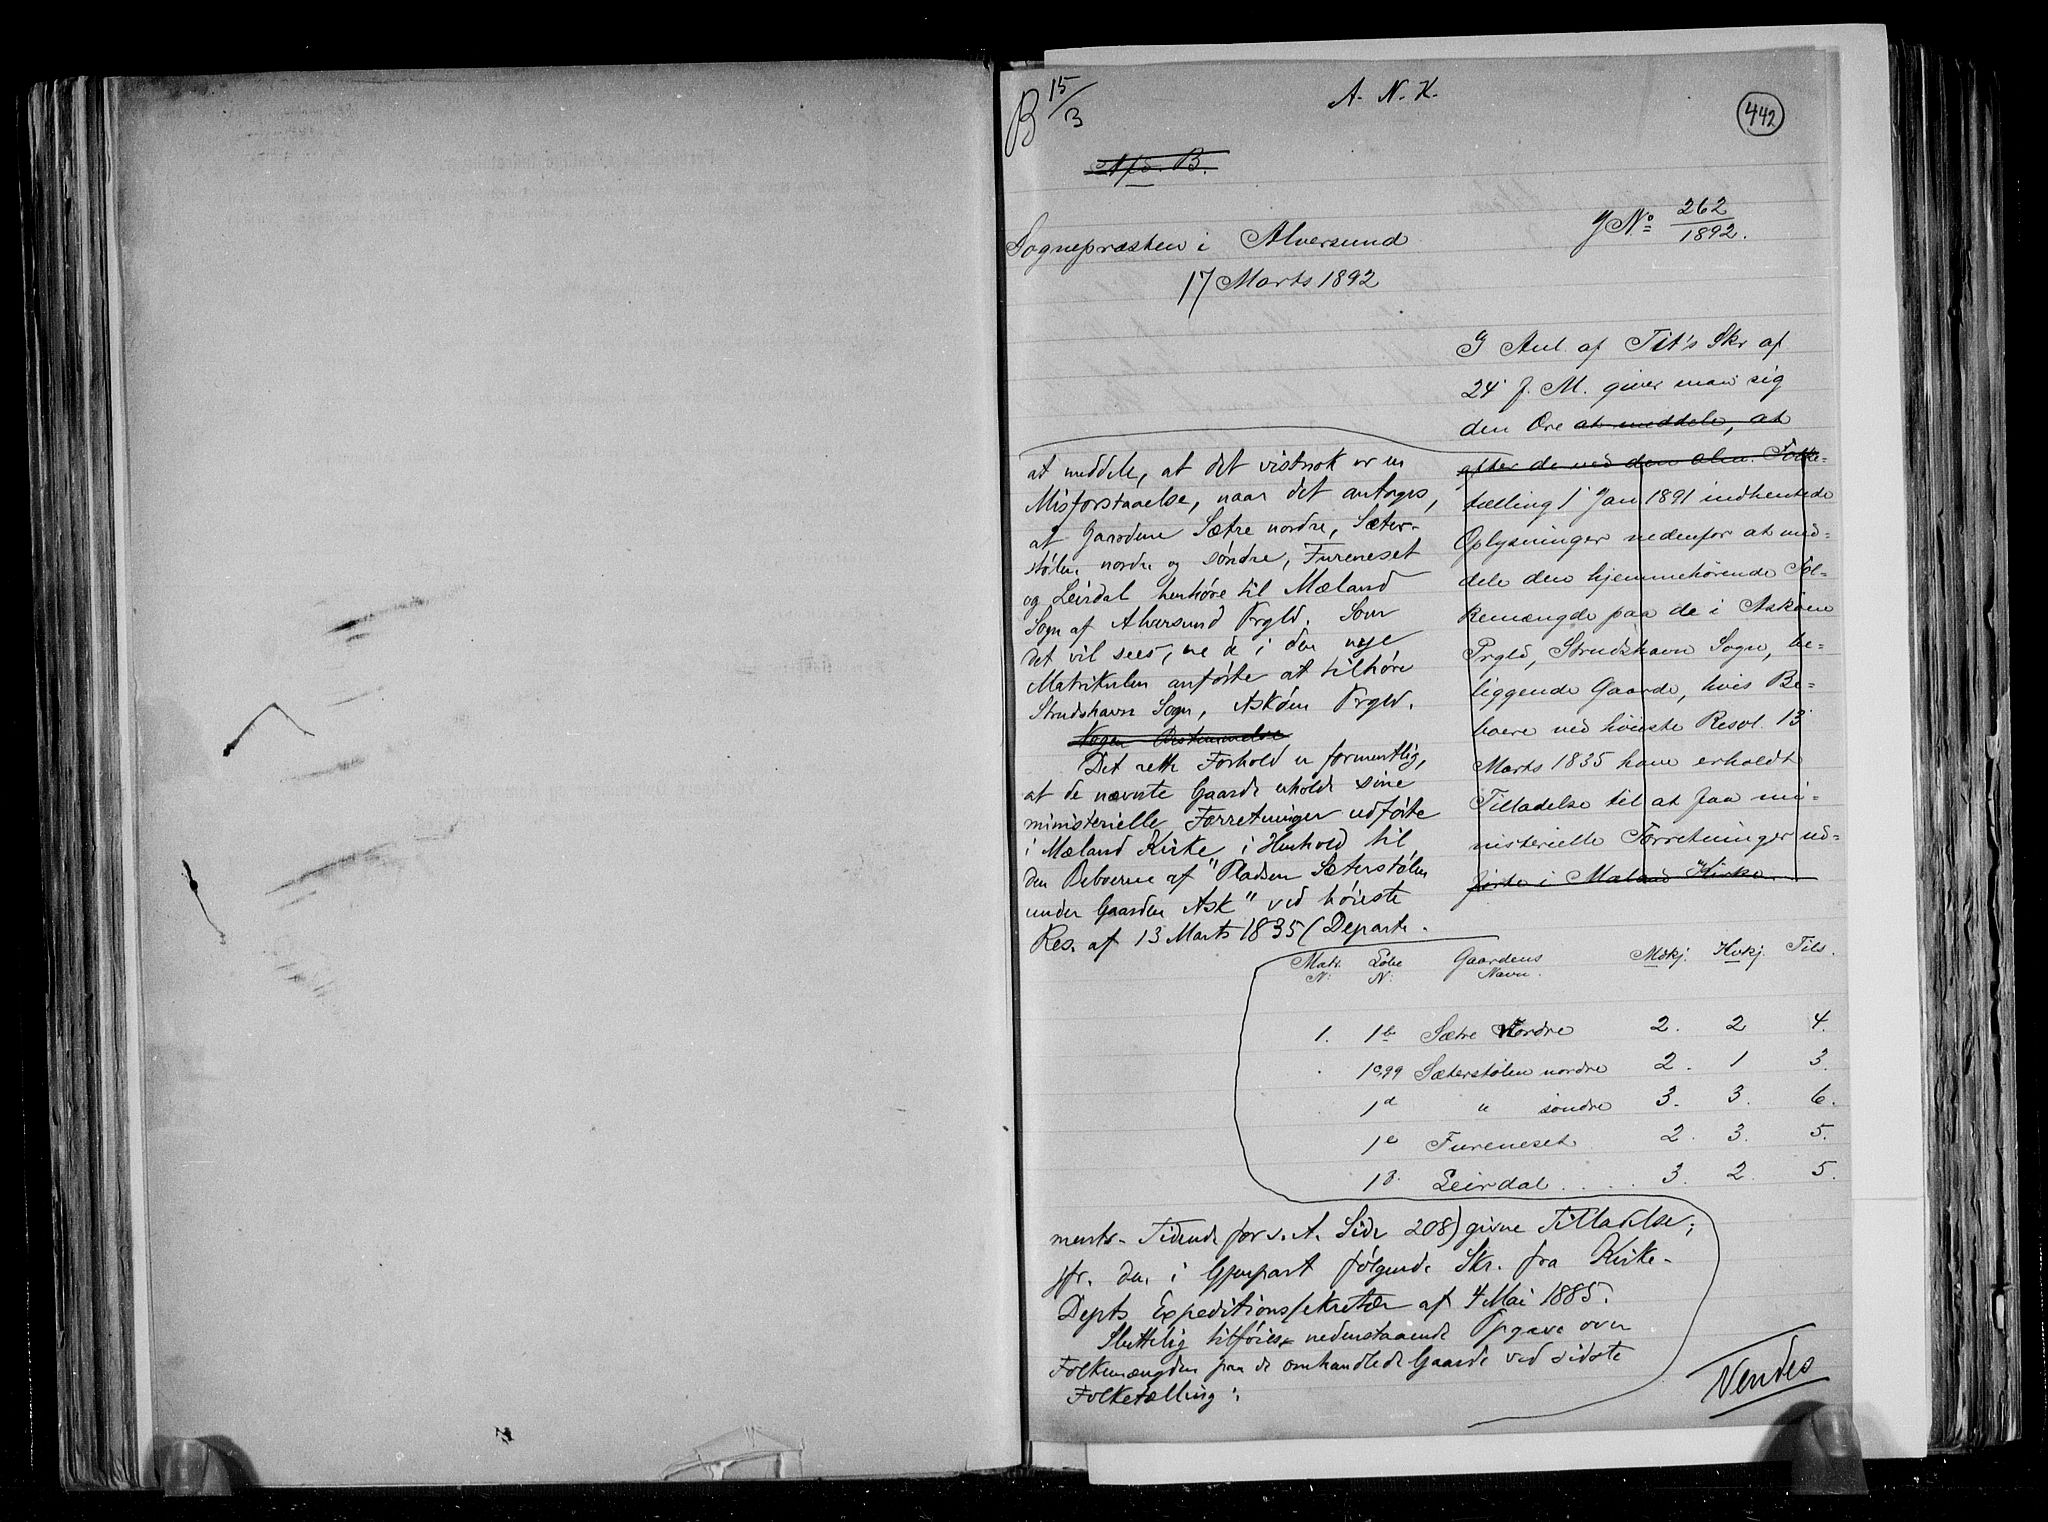 B 15/3
A. N. K.
442
Afd. B.
J № 262/1892.
Sognepræsten i Alversund
17 Marts 1892
I Anl. af Tit's Skr af
24 f. M. giver man sig
den Ære at meddele, at
efter de ved den alm. Folke-
tælling 1 Jan 1891 indhentede
Oplysninger nedenfor at med-
dele den hjemmehørende Fol-
kemængde paa de i Askøen
Prgld, Strudshavn Sogn, be-
liggende Gaarde, hvis Be-
boere ved høieste Resol. 13
Marts 1835 have erholdt
Tilladelse til at faa mi-
nisterielle Forretninger ud-
førte i Mæland Kirke.
at meddele, at det vistnok er en
Misforstaaelse, naar det antages,
at Gaardene Sætre nordre, Sæter-
stølen nordre og søndre, Fureneset
og Leirdal henhøre til Mæland
Sogn af Alversund Prgld. Som
det vil sees, ere de i den nye
Matrikulen anførte at tilhøre
Strudshavn Sogn, Askøen Prgld.
Nogen Bestemmelse
Det rette Forhold er formentlig,
at de nævnte Gaarde erholde sine
ministerielle Forretninger udførte
i Mæland Kirke i Henhold til
den Beboerne af "Pladsen Sæterstølen
under Gaarden Ask" ved høieste
Res. af 13 Marts 1835 (Departe-
Matr. N. Løbe N. Gaardens Navn. Mdkj. Kvkj. Tils.
1. 1b Sætre Nordre 2. 2 4.
1c,99 Sæterstølen nordre 2. 1 3.
1d " søndre 3. 3. 6.
1e Fureneset 2. 3. 5.
1f. Leirdal . . . . 3. 2. 5.
ments-Tidende for s. A. Side 208) givne Tilladelse;
jfr. den i Gjenpart følgende Skr. fra Kirke-
Depts Expeditionssekretær af 4 Mai 1885.
Sluttelig tilføies nedenstaaende Opgave over
Folkemængden paa de omhandlede Gaarde ved sidste
Folketælling:
Vendes